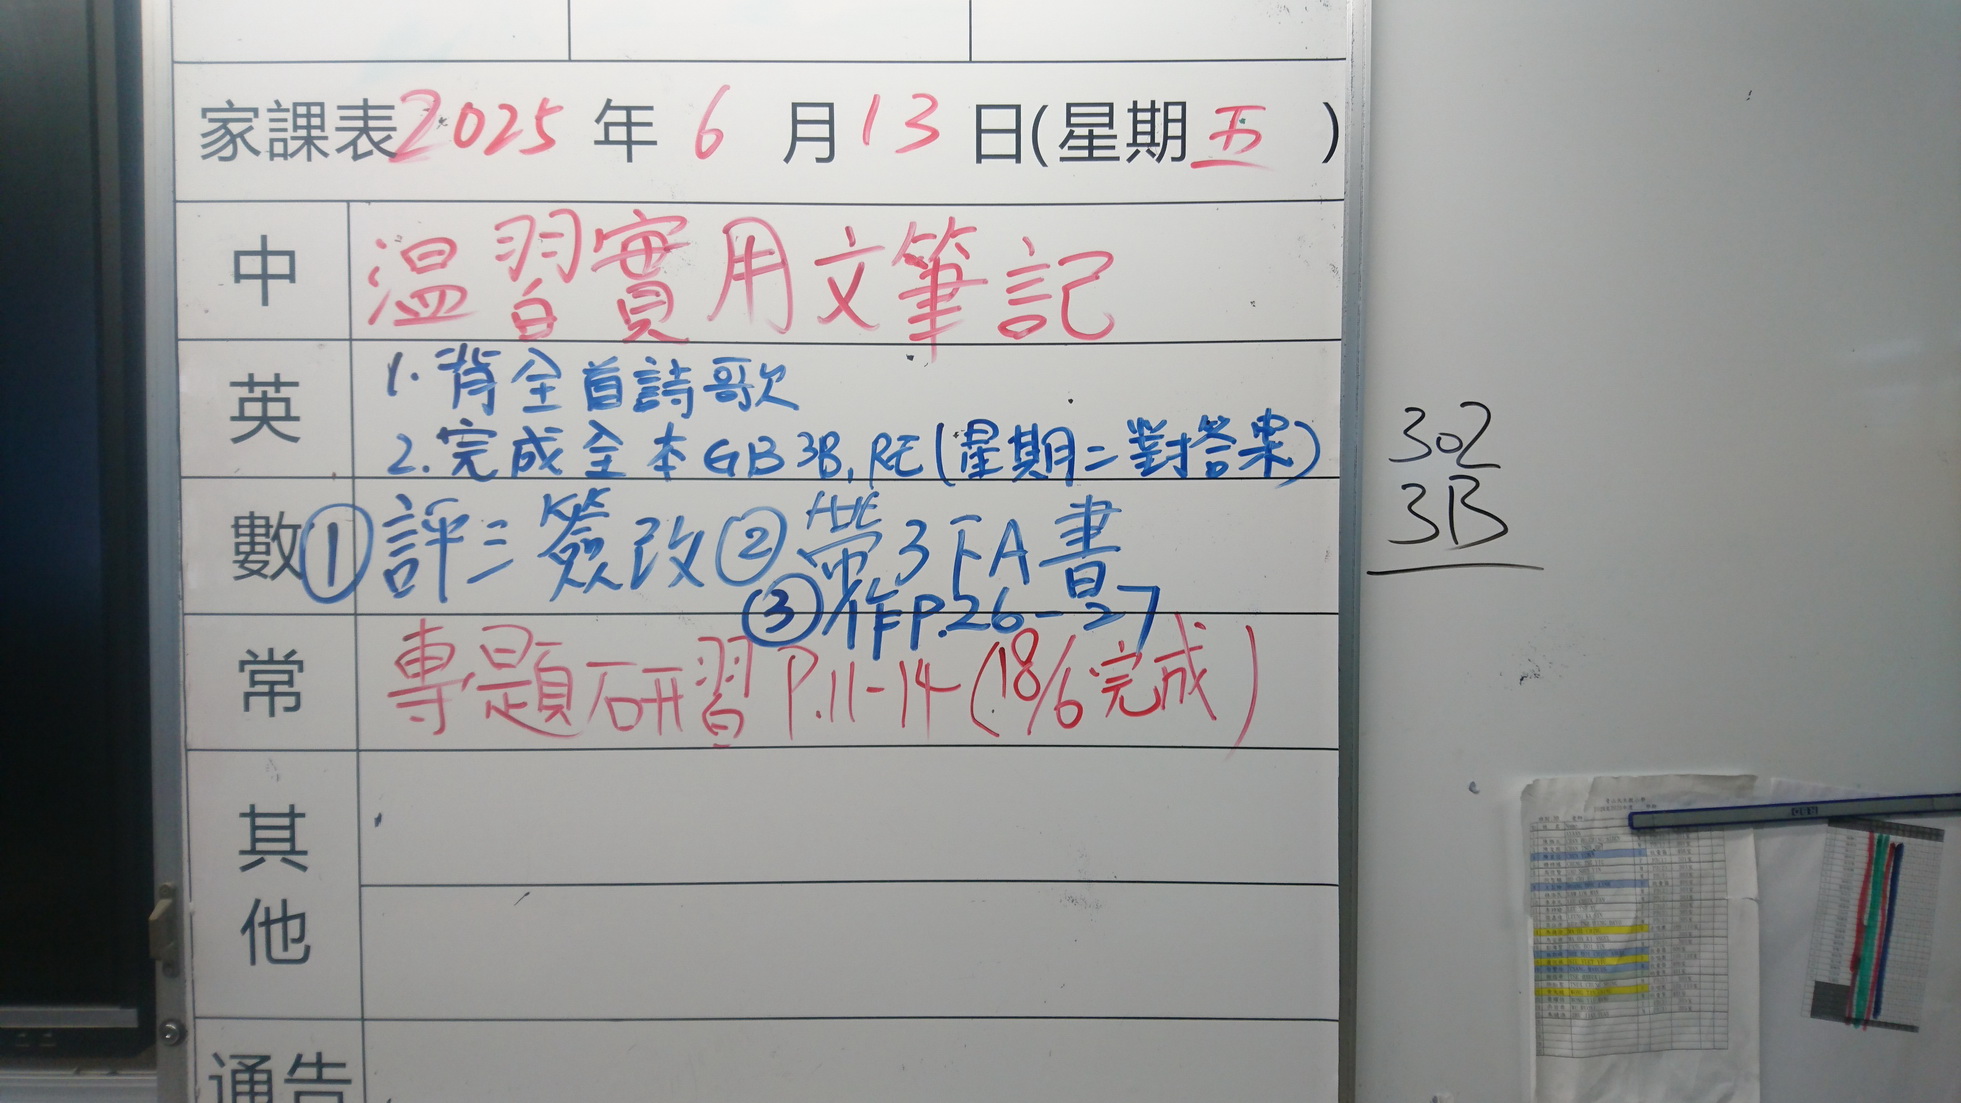 家課表2025年6月13日(星期五)
中 溫習實用文筆記
英 1. 背全首詩歌
2. 完成全本GB 3B, RE(星期二對答案)
數 ①評三簽改 ②帶3下A書
③作P.26-27
常 專題研習P.11-14(18/6完成)
其他
通告
302
3B